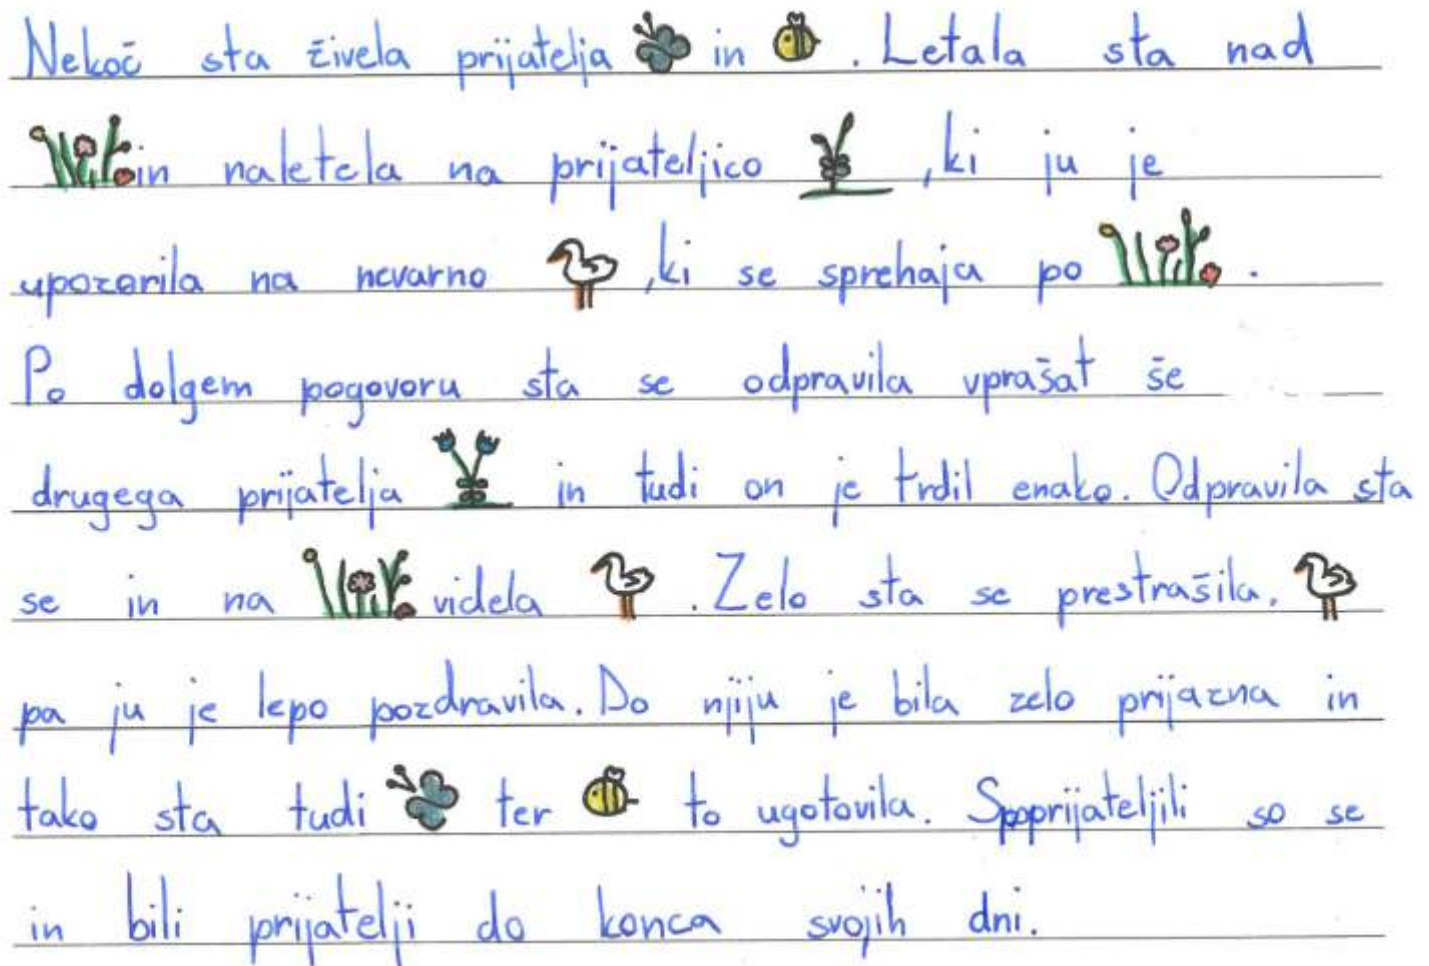 Nekoč sta živela prijatelja in . Letala sta nad
in naletela na prijateljico , ki ju je
upozorila na nevarno , ki se sprehaja po .
Po dolgem pogovoru sta se odpravila vprašat še
drugega prijatelja in tudi on je trdil enako. Odpravila sta
se in na videla . Zelo sta se prestrašila.
pa ju je lepo pozdravila. Do njiju je bila zelo prijazna in
tako sta tudi ter to ugotovila. Spoprijateljili so se
in bili prijatelji do konca svojih dni.